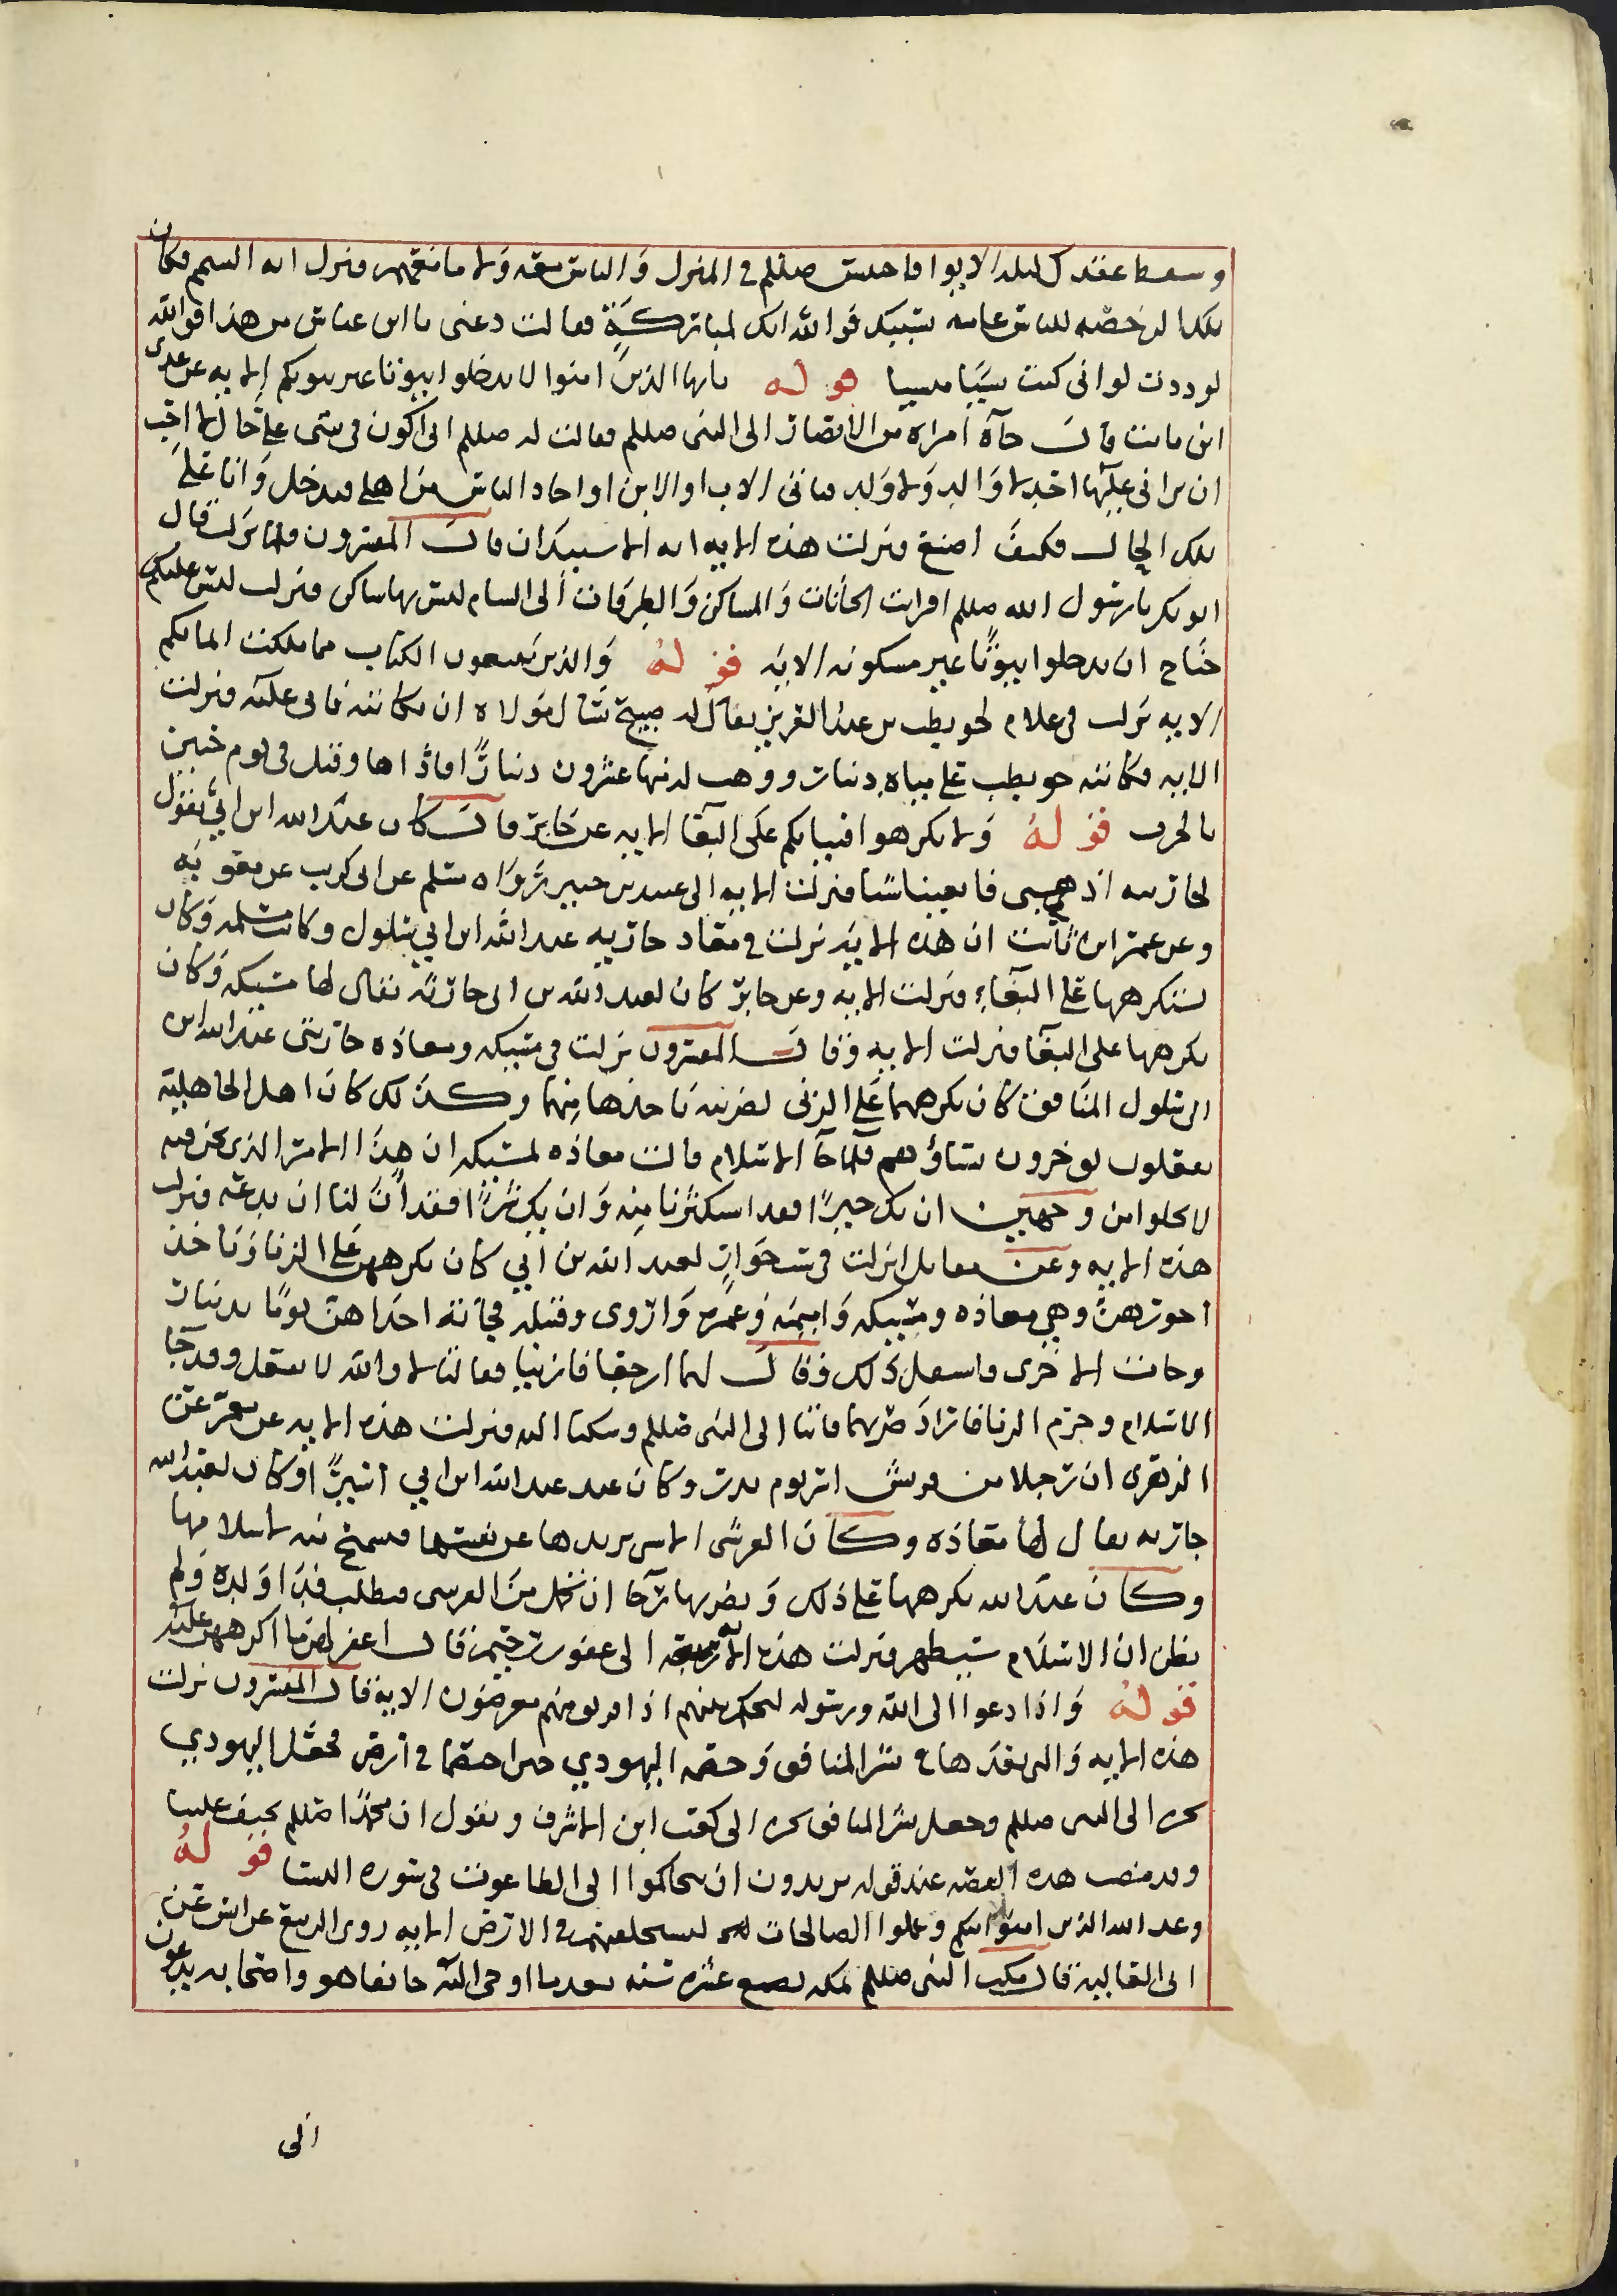 وسقط عقدك ليلة الابوا فاحتبس صللم في المنزل والناس معه ولا ما معهم فنزل اية التيمم فكان
تلك الرخصة للناس عامة بسببك فوالله انك لمباركة فقالت دعني يا ابن عباس من هذا فوالله
لوددت لو اني كنت نسيا منسيا قوله يايها الذين امنوا لا تدخلوا بيوتا غير بيوتكم الاية عن عدي
ابن ثابت قال جآة امراة من الانصار الى النبي صللم فقالت له صللم اني اكون في بيتي على حال لا احب
ان يراني عليها احد لا والد ولا ولد فياتي الاب او الابن او احاد الناس من اهلي فيدخل وانا على
تلك الحال فكيف اصنع فنزلت هذه الاية اية الاستيذان قال المفسرون فلما نزلت قال
ابو بكر يا رسول الله صللم افرايت الخانات والمساكن والطرقات الى الشام ليس بها ساكن فنزلت ليس عليكم
جناح ان تدخلوا بيوتا غير مسكونة الاية قوله والذين يبتغون الكتاب مما ملكت ايمانكم
الاية نزلت في غلام لحويطب بن عبد العزيز يقال له صبيح سال مولاه ان يكاتبه فابى عليه فنزلت
الاية فكاتبه حويطب على مياة دينار ووهب له منها عشرون دينارًا فاداها وقتل في يوم حنين
بالحرب قوله ولا تكرهوا فتياتكم على البغآ الاية عن جابر قال كان عبد الله ابن ابي يقول
لجاريه اذهبي فابغينا شيا فنزلت الاية الى عسد بن جبير رواه مسلم عن ابي كريب عن معويه
وعن عمر ابن ثابت ان هذه الاية نزلت في معاد جاريه عبد الله ابن ابي سلول وكانت مسلمه وكان
يستكرهها على البغاء فنزلت الاية وعن جابر كان لعبد الله بن ابي جارية يقال لها مسيكه وكان
يكرهها على البغآ فنزلت الاية وقال المفسرون نزلت في مسيكه ومعاذه جاريتى عبد الله ابن
ابي سلول المنافق كان يكرههما على الزنى لضريبه ياخذها منهما وكذلك كان اهل الجاهلية
يفعلون يوجرون نساؤهم فلما جآ الاسلام قالت معاذه لمسيكه ان هذا الامر الذي نحن فيه
لا يخلوا من وجهين ان يك خيرًا فقد استكثرنا منه وان يك شرًا فقد ان لنا ان ندعه فنزلت
هذه الاية وعن مقاتل نزلت في ست جوارٍ لعبد الله بن ابي كان يكرههن على الزنا وياخذ
اجورهن وهي معاذه ومسيكه واميمه وعمره واروى وقتيله فجآته احداهن يومًا بدينار
وجات الاخرى فاسفل ذلك فقال لهما ارجعا فازنيا فقالتا لا والله لا نفعل وقد جآ
الاسلام وحرم الزنا فاراد ضربهما فاتتا الى النبي صللم وشكتا اليه فنزلت هذه الاية عن معمر عن
الزهري ان رجلا من قريش اسر يوم بدر وكان عند عبد الله ابن ابي اسيرًا وكان لعبد الله
جاريه يقال لها معاذه وكان القرشي الاسير يريدها عن نفسها فتمتنع منه لاسلامها
وكان عبد الله يكرهها على ذلك ويضربها رجا ان تحمل من القرشي فيطلب فدا ولده ولم
يظن ان الاسلام سيظهر فنزلت هذه الاية الى غفور رحيم قال اغفر لهن ما اكرههن عليه
قوله واذا دعوا الى الله ورسوله ليحكم بينهم اذا فريق منهم معرضون الاية قال المفسرون نزلت
هذه الاية والتي بعدها في بشر المنافق وخصمه اليهودي حين اختصما في ارض فجعل اليهودي
يجره الى النبي صللم وجعل بشر المنافق يجره الى كعب ابن الاشرف ويقول ان محمدًا صللم يحيف علينا
وقد مضت هذه القصة عند قوله يريدون ان يتحاكموا الى الطاغوت في سورة النسا قوله
وعد الله الذين امنوا منكم وعملوا الصالحات ليستخلفنهم في الارض الاية روى الربيع عن انس عن
ابي العالية قال مكث النبي صللم بمكة بضع عشرة سنه بعد ما اوحي اليه خايفا هو واصحابه يدعون
الى